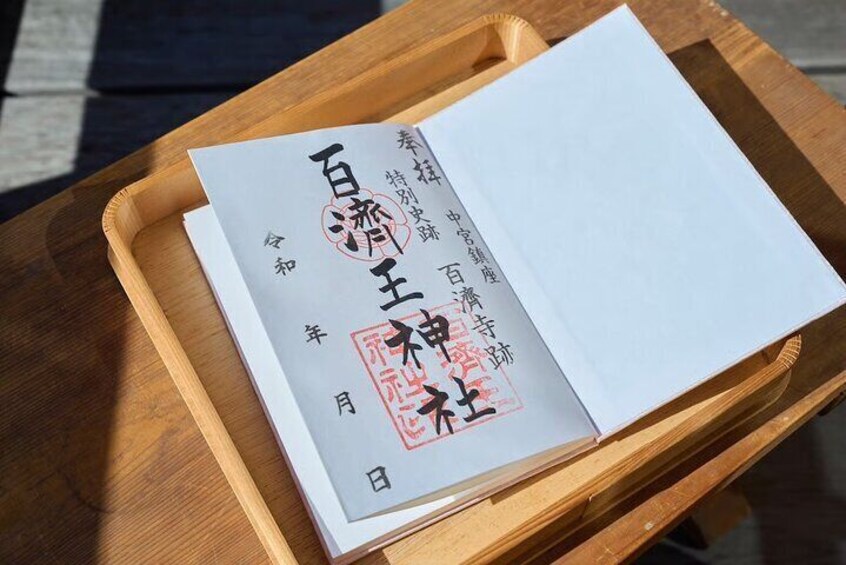 奉拝 中宮鎮座
特別史跡 百濟寺跡
百濟王神社
令和 年 月 日